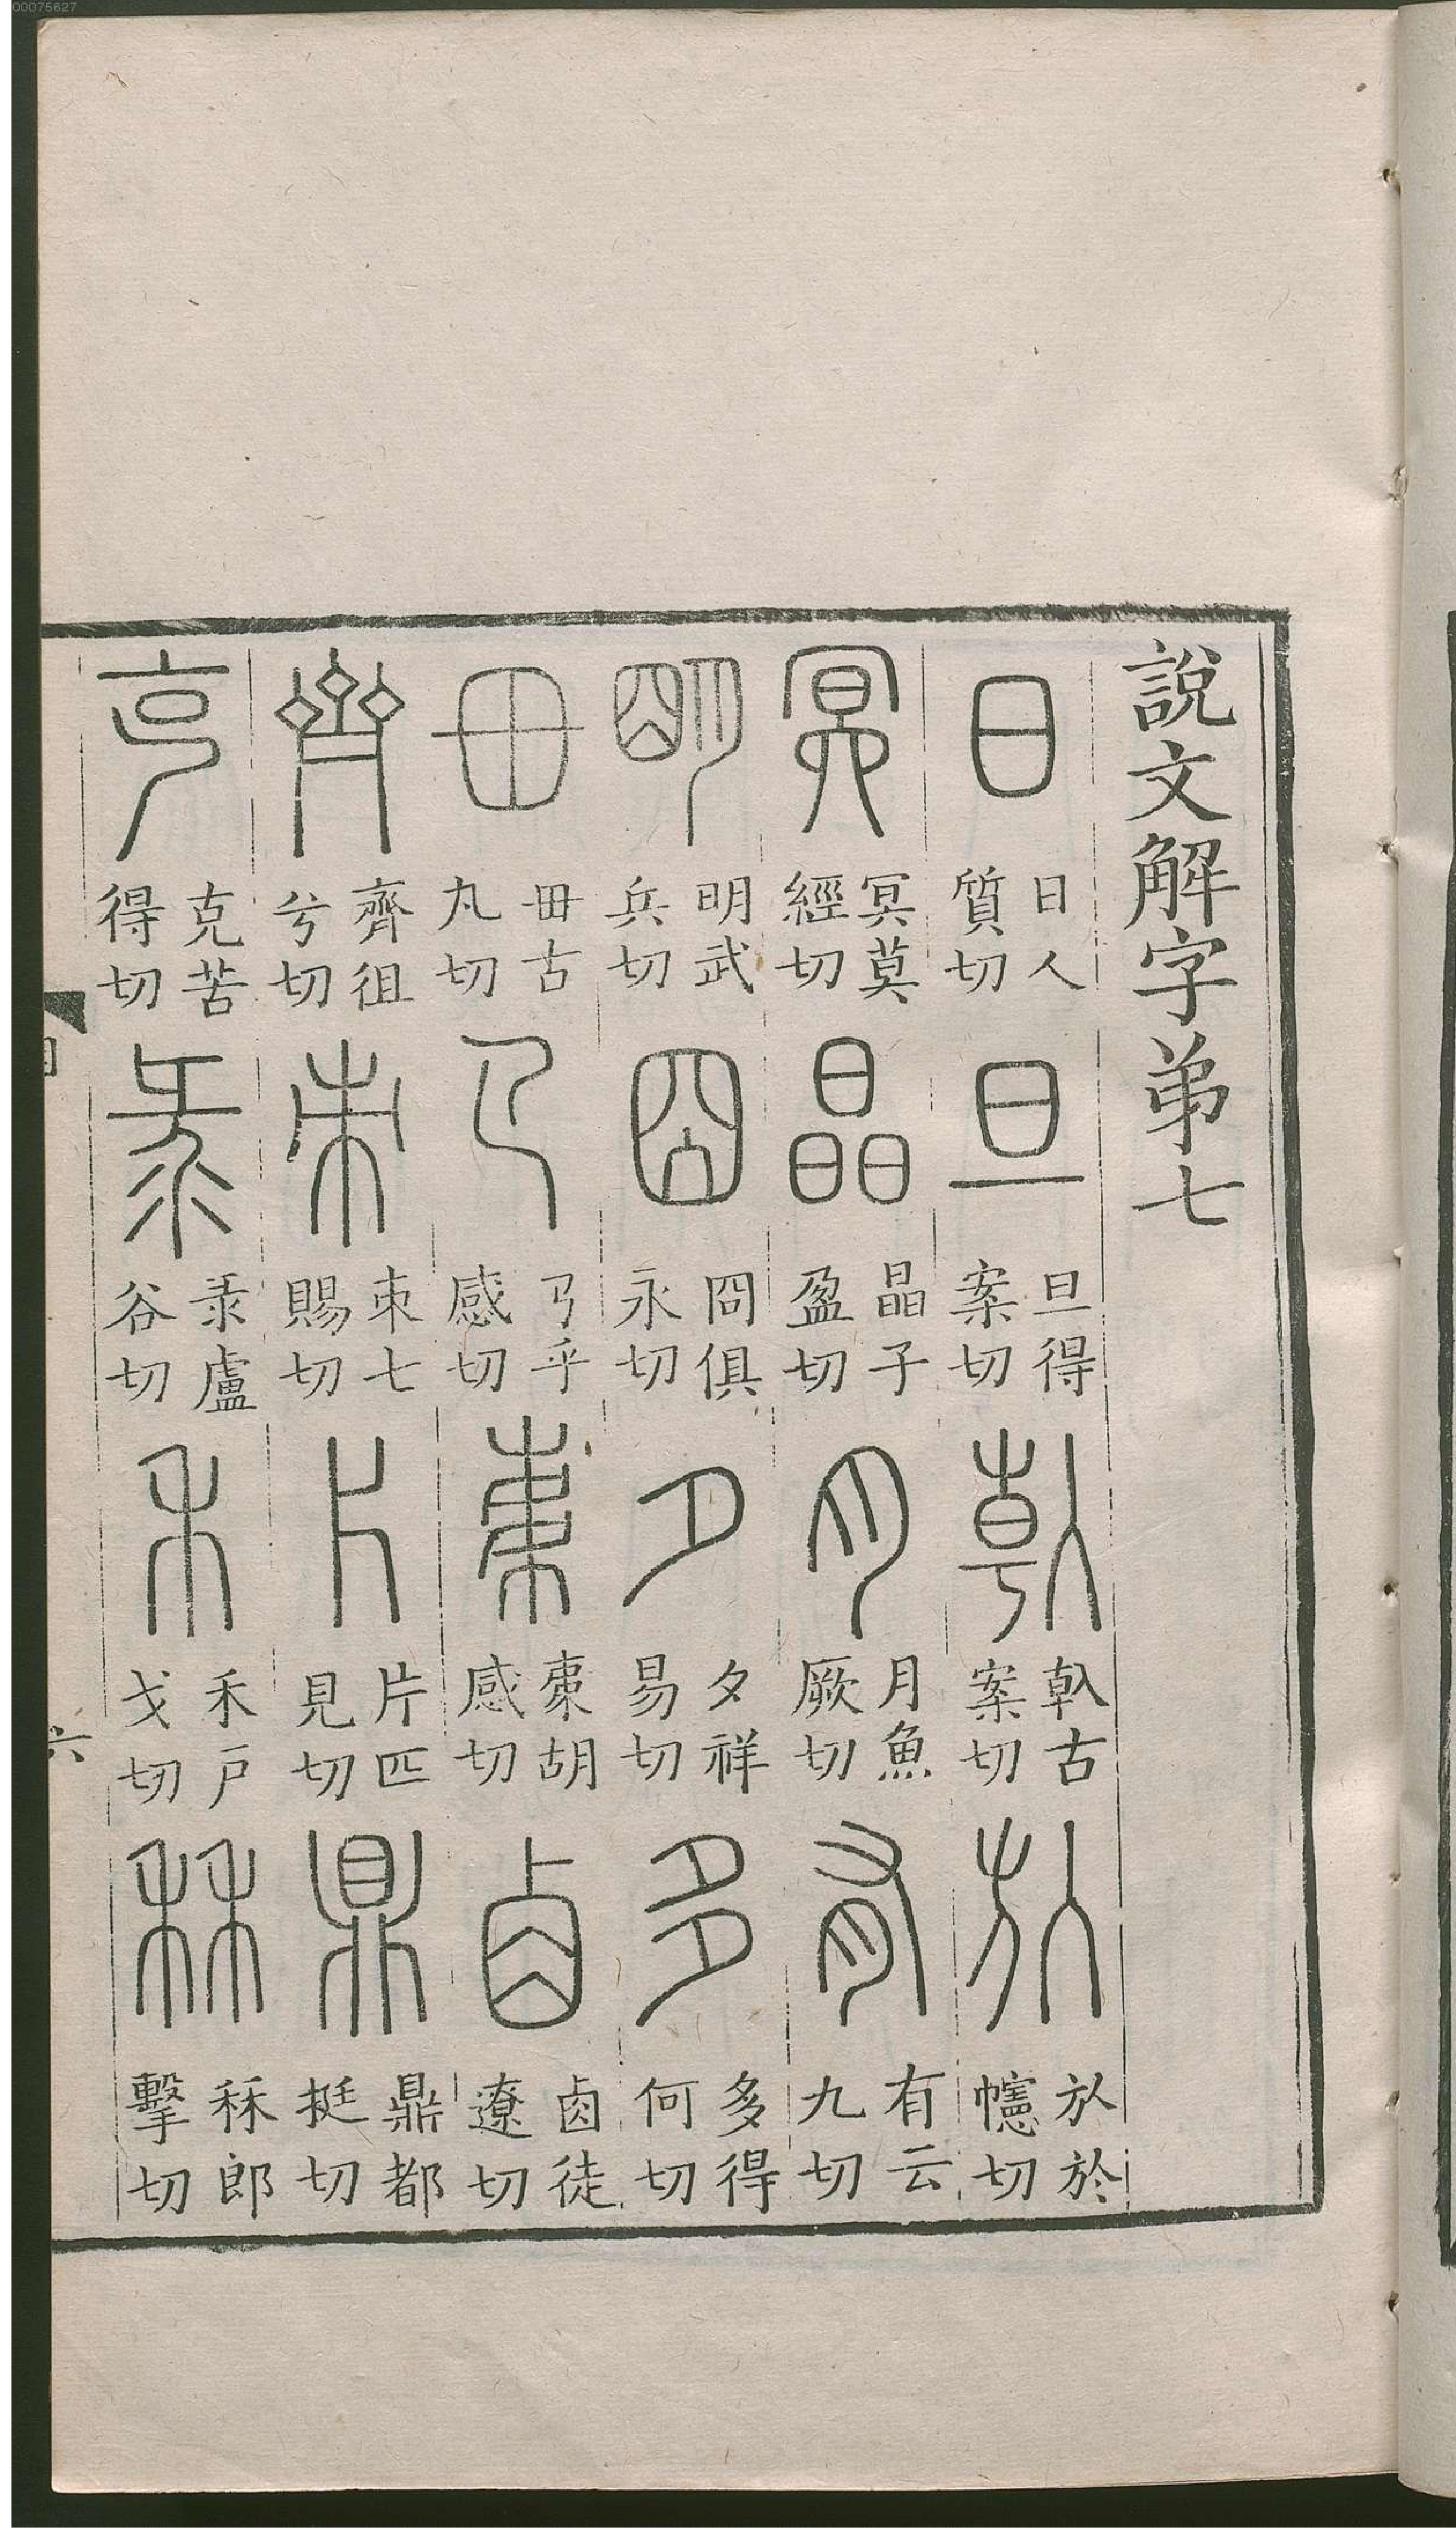 00075627
說文解字弟七
日 日人質切 旦 旦得案切 倝 倝古案切 㫃 㫃於幰切
冥 冥莫經切 晶 晶子盈切 月 月魚厥切 有 有云九切
明 明武兵切 囧 囧俱永切 夕 夕祥易切 多 多得何切
毌 毌古丸切 𢎘 𢎘乎感切 㯥 㯥胡感切 𠧪 𠧪徒遼切
齊 齊徂兮切 朿 朿七賜切 片 片匹見切 鼎 鼎都挺切
克 克苦得切 彔 彔盧谷切 禾 禾戶戈切 秝 秝郎擊切
六